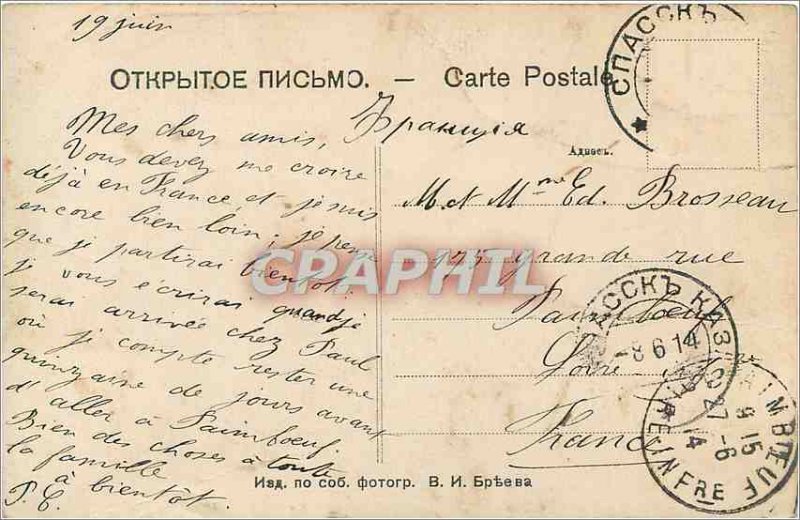 19 juin
ОТКРЫТОЕ ПИСЬМО. — Carte Postale
СПАССКЪ
Mes chers amis,
Vous devez me croire
déjà en France et je suis
encore bien loin; je pense
que je partirai bientôt.
je vous écrirai quand je
serai arrivée chez Paul
où je compte rester une
quinzaine de jours avant
d'aller à Paimboeuf.
Bien des choses à toute
la famille
à bientôt.
Франція
Адресъ.
M. et Mme Ed. Brosseau
175 grande rue
Paimboeuf
Loire
France
СПАССКЪ КАЗ
-8 6 14
PAIMBŒUF
9 15
27 -6
14
LOIRE INFRE
CPARAPHIL
Изд. по соб. фотогр. В. И. Брѣева